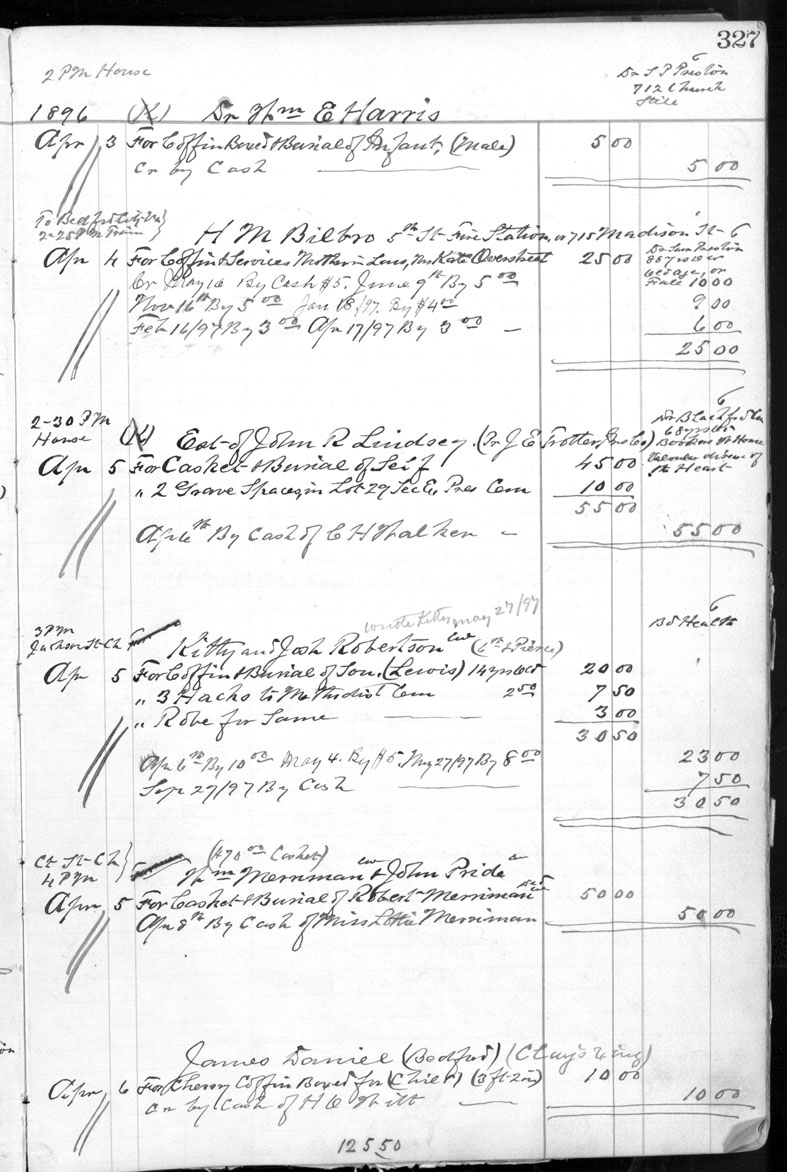 327
2 PM House
Dr S P Preston
712 Church
Still
1896 (X) Dr Wm E Harris
Apr 3 For Coffin Boxed & Burial of Infant, (Male) 5 00
Cr by Cash 5 00
To Bedford City Va
2-25 PM Train
H M Bilbro 5th St Fire Station, or 715 Madison St 6
Apr 4 For Coffin & Services Mother in Law, Mrs Kate Overstreet 25 00
Dr Sam Preston
old age, or
Cr May 16 By Cash $5. June 9th By 5 00 10 00
Nov 16th By 5 00 Jan 18/97. By $4 00 9 00
Feb 16/97 By 3 00 Apr 17/97 By 3 00 6 00
25 00
2-30 PM
House
(X) Est of John R Lindsey. (Dr J E Trotter, Ins Co)
6
68 yrs
Valvular disease of
the Heart
Apr 5 For Casket & Burial of Self 45 00
" 2 Grave Spaces, in Lot 29 Sec E, Pres Cem 10 00
55 00
Apr 6th By Cash of C H Walker 55 00
wrote Kitty may 27/97
3 PM
Jackson St Ch
Kitty and Josh Robertson cw (6th & Pierce)
6
Bd Health
Apr 5 For Coffin & Burial of Son, (Lewis) 14 yrs old 20 00
" 3 Hacks to Methodist Cem 2 50 7 50
" Robe for Same 3 00
30 50
Apr 6th By 10 00 May 4. By $5. May 27/97 By 8 00 23 00
Sep 27/97 By Cash 7 50
30 50
Ct St Ch
4 PM
($70 00 Casket)
Wm Merriman cw & John Pride
Apr 5 For Casket & Burial of Robert Merriman 50 00
Apr 8th By Cash of Miss Lottie Merriman 50 00
James Daniel (Bedford) (Clay's wing)
Apr 6 For Cherry Coffin Boxed for (Child) (3 ft 2 in) 10 00
Cr by Cash of H C Whitt 10 00
125 50